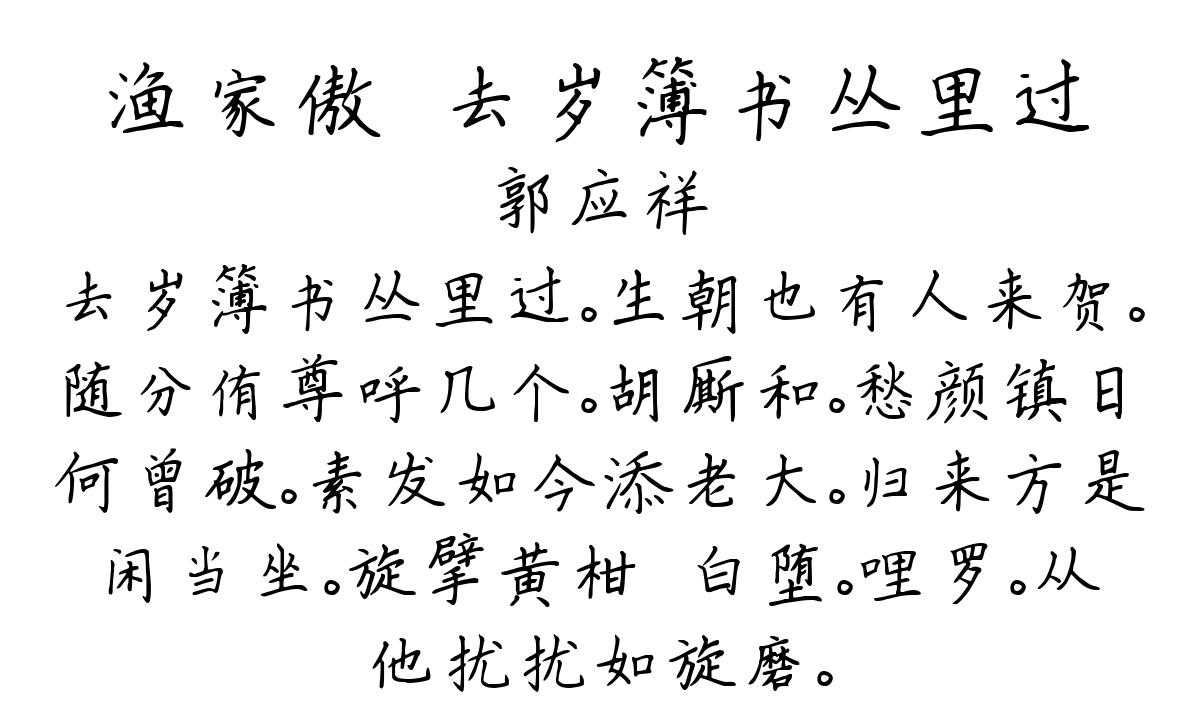 渔家傲 去岁簿书丛里过
郭应祥
去岁簿书丛里过。生朝也有人来贺。
随分侑尊呼几个。胡厮和。愁颜镇日
何曾破。素发如今添老大。归来方是
闲当坐。旋擘黄柑 白堕。哩罗。从
他扰扰如旋磨。